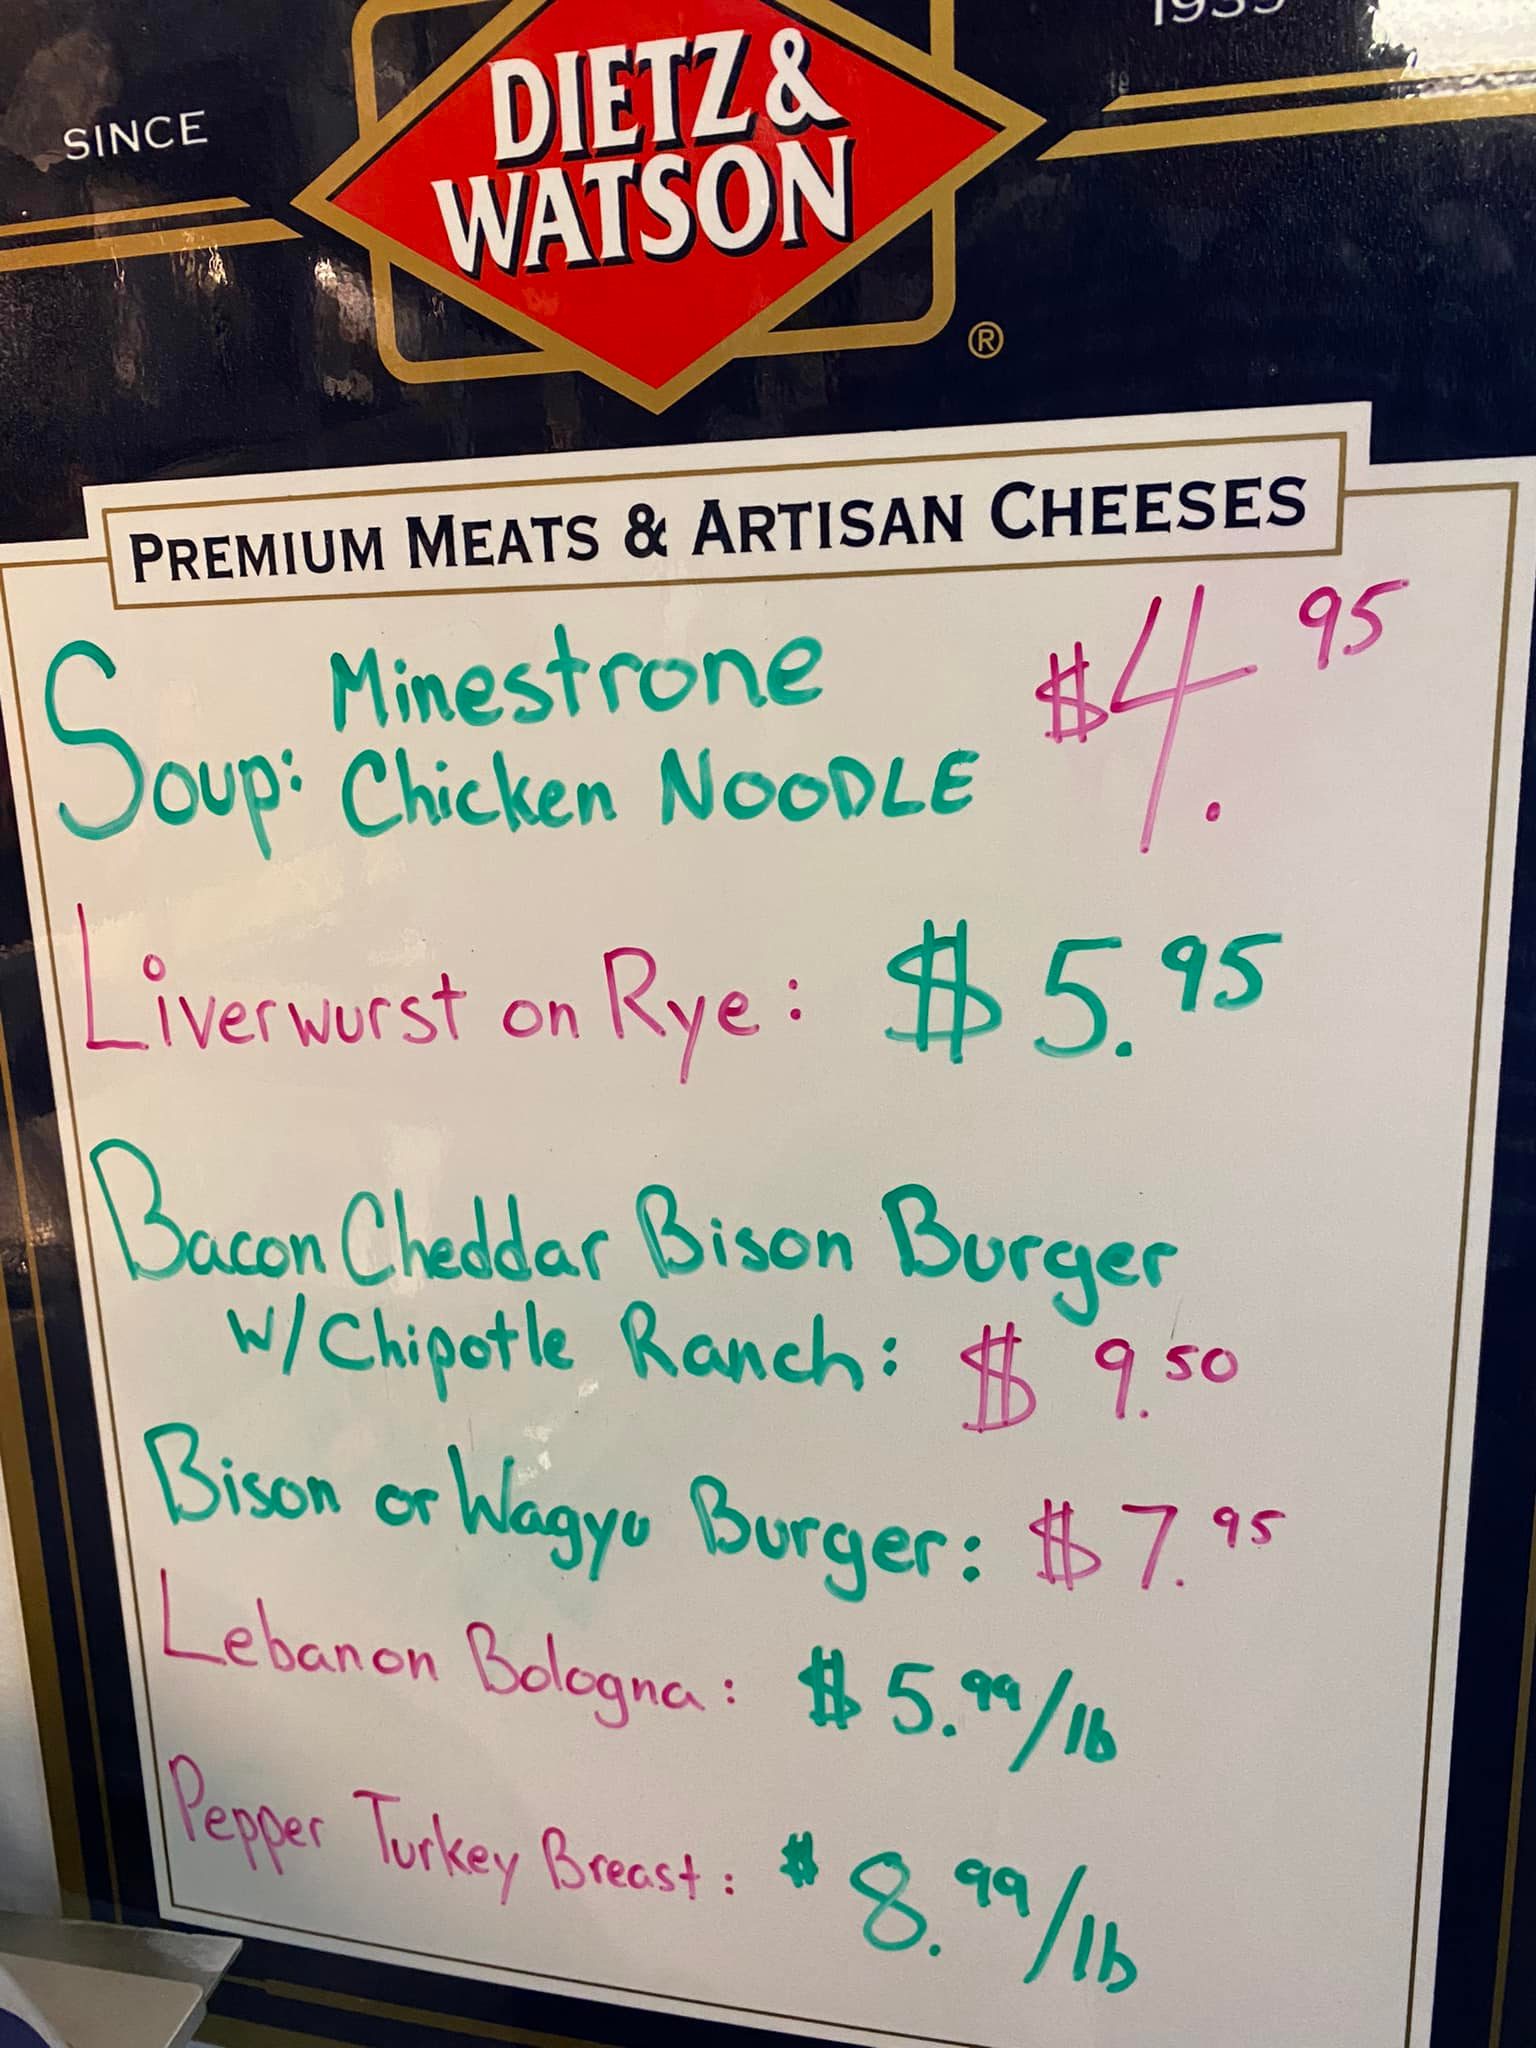 SINCE 1939
DIETZ &
WATSON
®
PREMIUM MEATS & ARTISAN CHEESES
Minestrone $4.95
Soup: Chicken NOODLE
Liverwurst on Rye: $5.95
Bacon Cheddar Bison Burger
w/Chipotle Ranch: $9.50
Bison or Wagyu Burger: $7.95
Lebanon Bologna: $5.99/lb
Pepper Turkey Breast: $8.99/lb